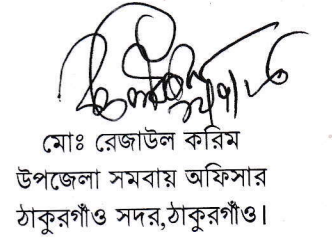 মোঃ রেজাউল করিম
উপজেলা সমবায় অফিসার
ঠাকুরগাঁও সদর,ঠাকুরগাঁও।